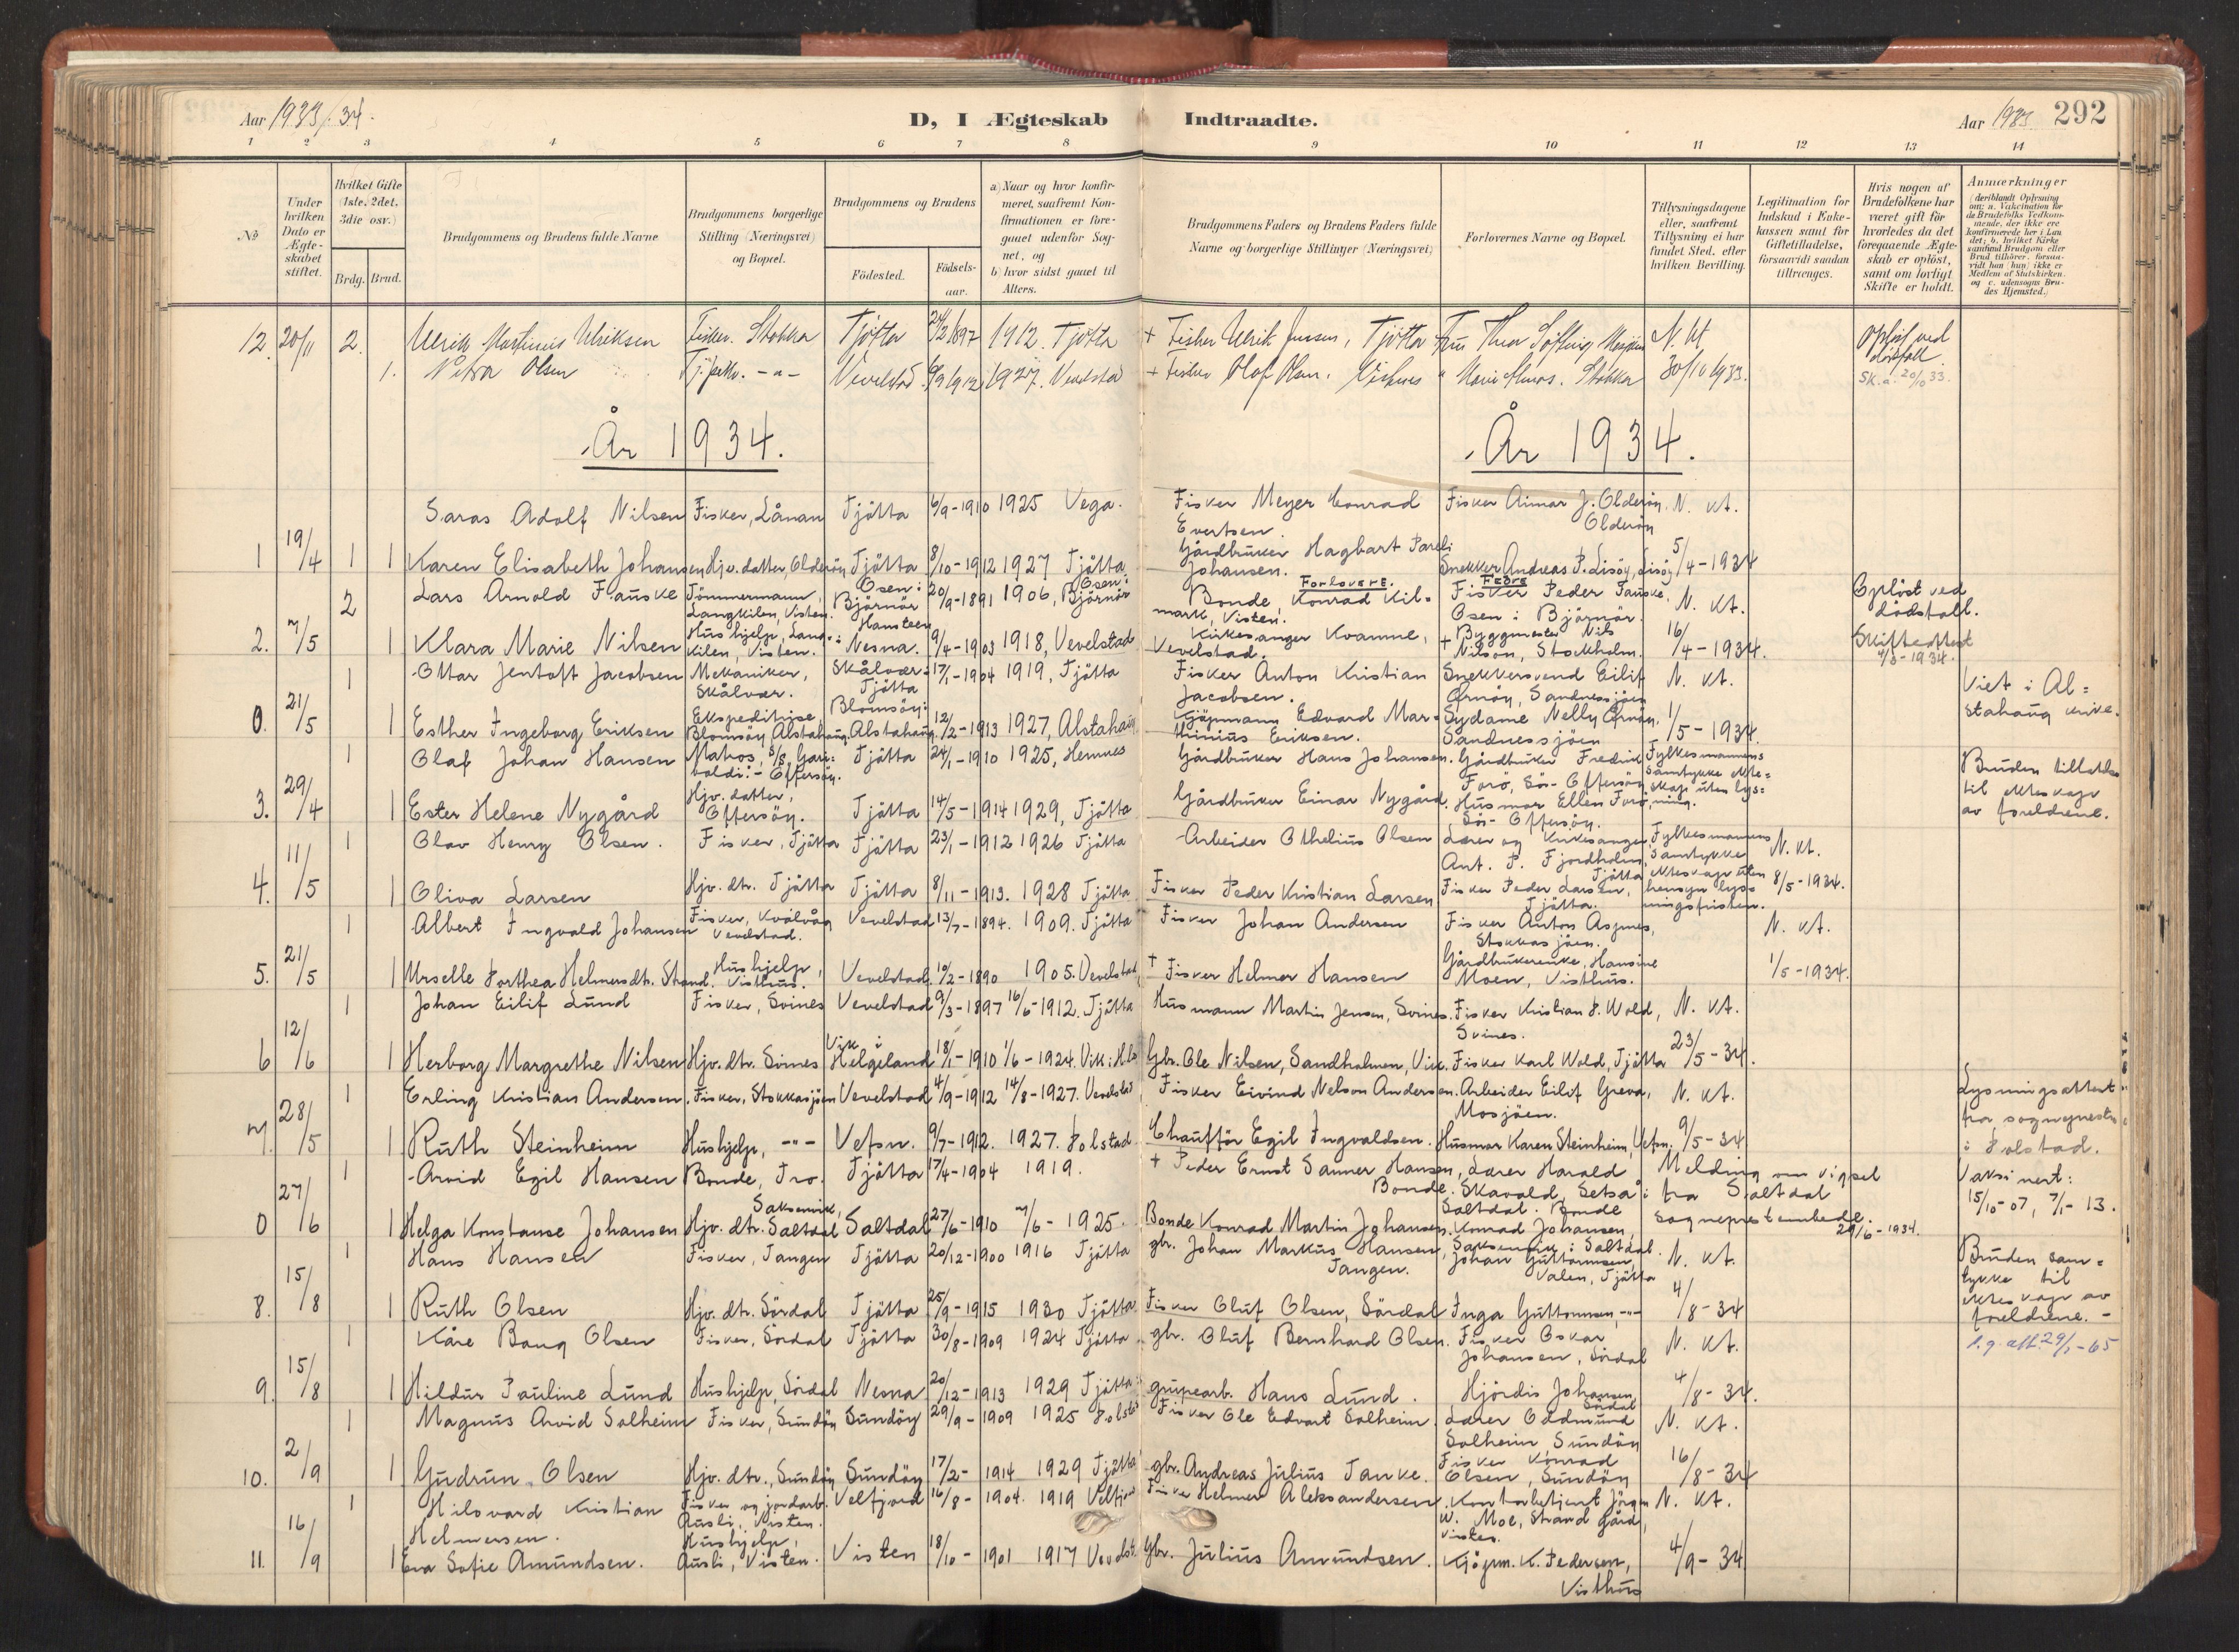 Aar 1933/34.
D, I Ægteskab Indtraadte.
Aar 1933. 292
1 2 3 4 5 6 7 8 9 10 11 12 13 14
No
Under hvilken Dato er Ægteskabet stiftet.
Hvilket Gifte (1ste, 2det, 3die osv.)
Brdg. Brud.
Brudgommens og Brudens fulde Navne
Brudgommens borgerlige Stilling (Næringsvei) og Bopæl.
Brudgommens og Brudens
Födested.
Födsels-aar.
a) Naar og hvor konfirmeret, saafremt Konfirmationen er foregaaet udenfor Sognet, og
b) hvor sidst gaaet til Alters.
Brudgommens Faders og Brudens Faders fulde Navne og borgerlige Stillinger (Næringsvei)
Forlovernes Navne og Bopæl.
Tillysningsdagene eller, saafremt Tillysning ei har fundet Sted, efter hvilken Bevilling.
Legitimation for Indskud i Enkekassen samt for Giftetilladelse, forsaavidt saadan tiltrænges.
Hvis nogen af Brudefolkene har været gift för hvorledes da det foregaaende Ægteskab er oplöst, samt om lovligt Skifte er holdt.
Anmærkninger (deriblandt Oplysning om: a. Vakcination for de Brudefolks Vedkommende, der ikke ere konfirmerede her i Landet; b. hvilket Kirkesamfund Brudgom eller Brud tilhörer, forsaavidt han (hun) ikke er Medlem af Statskirken, og c. udensogns Brudes Hjemsted.)
12. 20/11 2. Ulrik Martinus Ulriksen Fisker. Stokka Tjötta 24/2 1897 1912. Tjötta + Fisker Ulrik Jensen, Tjötta Fru Thea N. kt. Oplöst ved dödsfall.
1. Petra Olsen -"- Vevelstad 1912 1927. Vevelstad + Fisker Olaf Olsen. Stokka 30/10 1933. Sk.a. 20/10 33.
År 1934. År 1934.
Saras Adolf Nilsen Fisker, Lånan Tjötta 6/9-1910 1925 Vega. Fisker Meyer Conrad Evertsen. Fisker Aimar J. Olderöy. Olderöy N. kt.
1 19/4 1 1 Karen Elisabeth Johansen Hjv. datter, Olderöy Tjötta 8/10-1912 1927 Tjötta Gårdbruker Hagbart Pareli Johansen. Snekker Andreas P. Lisöy, Lisöy 5/4-1934
2 Lars Arnold Fauske Tömmermann, Langkilen, Visten. Osen i Björnör 20/9-1891 1906, Osen i Björnör Forlovere. Bonde, Konrad Kilmark, Visten. Fedre Fisker Peder Fauske, Osen i Björnör. N. kt. Oplöst ved dödsfall.
2. 7/5 1 Klara Marie Nilsen Hushjelp, Langkilen, Visten. Hansteen: Nesna. 9/4-1903 1918, Vevelstad Kirkesanger Kvamme, Vevelstad. + Byggmester Nils Nilson, Stockholm. 16/4-1934. Skifteattest 4/3-1934.
1 Ottar Jentoft Jacobsen Mekaniker, Skålvær. Skålvær: Tjötta 17/1-1904 1919, Tjötta Fisker Anton Kristian Jacobsen. Snekkersvend Eilif Örnöy, Sandnessjöen N. kt. Viet i Alstahaug kirke.
0. 21/5 1 Esther Ingeborg Eriksen Ekspeditrise, Blomsöy, Alstahaug. Blomsöy: Alstahaug. 12/2-1913 1927, Alstahaug Kjöpmann Edvard Martinius Eriksen. Sydame Nelly Örnöy. Sandnessjöen 1/5-1934.
1 Olaf Johan Hansen Matros, S/S Garibaldi: - Offersöy. Tjötta 24/1-1910 1925, Hemnes Gårdbruker Hans Johansen. Gårdbruker Fredrik Forö, Sör-Offersöy Fylkesmannens samtykke ekteskap uten lysning. Bruden tillatelse til ekteskap av foreldrene.
3. 29/4 1 Ester Helene Nygård Hjv. datter, Offersöy. Tjötta 14/5-1914 1929, Tjötta Gårdbruker Einar Nygård. Husmor Ellen Forö, Sör-Offersöy.
1 Olav Henry Olsen. Fisker, Tjötta Tjötta 23/1-1912 1926 Tjötta Arbeider Othelius Olsen Lærer og kirkesanger Ant. P. Fjordholm, Tjötta Fylkesmannens samtykke ekteskap uten hensyn lysningsfristen. N. kt.
4. 11/5 1 Oliva Larsen Hjv. dtr. Tjötta Tjötta 8/11-1913. 1928 Tjötta Fisker Peder Kristian Larsen Fisker Peder Larsen, Tjötta. 8/5-1934.
1 Albert Ingvald Johansen Fisker, Kvålvåg Vevelstad. Vevelstad 13/7-1894. 1909. Tjötta Fisker Johan Andersen Fisker Anton Aspnes, Stokkasjöen. N. kt.
5. 21/5 1 Urselle Dorthea Helmersdtr. Strand. Hushjelp, Visthus. Vevelstad 10/2-1890 1905. Vevelstad + Fisker Helmer Hansen Gårdbrukerenke, Hansine Moen, Visthus. 1/5-1934.
1 Johan Eilif Lund Fisker, Svines Vevelstad 9/3-1897 16/6-1912. Tjötta Husmann Martin Jensen, Svines. Fisker Kristian D. Wold, Svines. N. kt.
6 12/6 1 Herborg Margrethe Nilsen Hjv. dtr. Svines Vik i Helgeland 18/1-1910 1/6-1924. Vik i Hel. Gbr. Ole Nilsen, Sandholmen, Vik. Fisker Karl Wold, Tjötta 23/5-34.
1 Erling Kristian Andersen. Fisker, Stokkasjöen Vevelstad 4/9-1912 14/8-1927. Vevelstad Fisker Eivind Nelson Andersen. Arbeider Eilif Greva, Mosjöen. N. kt. Lysningsattest fra sogneprest i Dolstad.
7. 28/5 1 Ruth Steinheim Hushjelp, -"- Vefsn. 9/7-1912. 1927. Dolstad Chaufför Egil Ingvaldsen. Husmor Karen Steinheim, Vefsn. 9/5-34
1 Arvid Egil Hansen Bonde, Tro. Tjötta 17/4-1904 1919. + Peder Ernst Sanner Hansen, Bonde. Lærer Harald Skavold, Setså i Saltdal. Melding om vigsel fra Saltdal sogneprestembede. 29/6-1934. Vaksinert: 15/10-07, 7/1-13.
0 27/6 1 Helga Konstanse Johansen Hjv. dtr. Saksenvik, Saltdal Saltdal 27/6-1910 7/6-1925. Bonde Konrad Martin Johansen. Bonde Konrad Johansen, Saksenvik i Saltdal.
1 Hans Hansen Fisker, Tangen Tjötta 20/12-1900 1916 Tjötta gbr. Johan Markus Hansen, Tangen. Johan Guttormsen, Valen, Tjötta N. kt. Bruden samtykke til ekteskap av foreldrene. -
8. 15/8 1 Ruth Olsen Hjv. dtr. Sördal Tjötta 25/9-1915 1930 Tjötta Fisker Oluf Olsen, Sördal Inga Guttormsen, -"- 4/8-34
1 Kåre Bang Olsen Fisker, Sördal Tjötta 30/8-1909 1924 Tjötta gbr. Oluf Bernhard Olsen. Fisker Oskar Johansen, Sördal N. kt. l.g. att. 29/1-65
9. 15/8 1 Hildur Pauline Lund Hushjelp, Sördal Nesna 20/12-1913 1929 Tjötta grupearb. Hans Lund. Hjördis Johansen, Sördal 4/8-34.
1 Magnus Arvid Solheim Fisker, Sundöy Sundöy 29/9-1909 1925 Dolstad Fisker Ole Edvart Solheim. Lærer Oddmund Solheim, Sundöy N. kt.
10. 2/9 1 Gudrun Olsen Hjv. dtr., Sundöy Sundöy 17/2-1914 1929 Tjötta gbr. Andreas Julius Tanke. Fisker Konrad Olsen, Sundöy 16/8-34
1 Hilsvard Kristian Helmersen. Fisker og jordarb. Ausli, Visten. Velfjord 16/8-1904. 1919 Velfjord Fisker Helmer Aleksandersen. Kontorbetjent Jörgen W. Moe, Strand gård, Visten. N. kt.
11. 16/9 1 Eva Sofie Amundsen. Hushjelp, Ausli, Visten. Visten 18/10-1901 1917 Vevelst. Gbr. Julius Amundsen. Kjöpm. K. Pedersen, Visthus 4/9-34